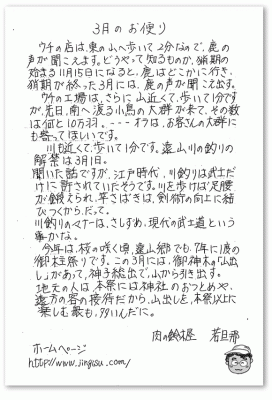 3月のお便り
ウチの店は、東の山へ歩いて2分なので、鹿の
声が聞こえます。どうやって知るものか、猟期の
始まる11月15日になると、鹿はどこかに行き、
猟期が終った3月には、鹿の声が聞こえ出す。
ウチの工場は、さらに山近くて、歩いて1分です
が、先日、南へ渡る小鳥の大群が来て、その数
は何と10万羽、----オラは、お客さんの大群に
も寄ってほしいです。
川も近くて、歩いて1分です。遠山川の釣りの
解禁は3月1日。
聞いた話ですが、江戸時代、川釣りは武士だ
けに許されていたそうです。川を歩けば足腰
が鍛えられ、竿さばきは、剣術の向上に結
びつくから、だって。
川釣りのマナーは、さしずめ、現代の武士道という
事かな。
今年は、桜の咲く頃、遠山郷でも、7年に1度の
御柱祭りです。この3月には、御神木の「山出
し」があって、神子総出で、山から引き出す。
地元の人は、本祭には神社のおつとめや、
遠方の客の接待だから、山出しを、本祭以上に
楽しむ最も、99いんだに。
肉の鈴木屋 若旦那
ホームページ
http://www.jingisu.com/